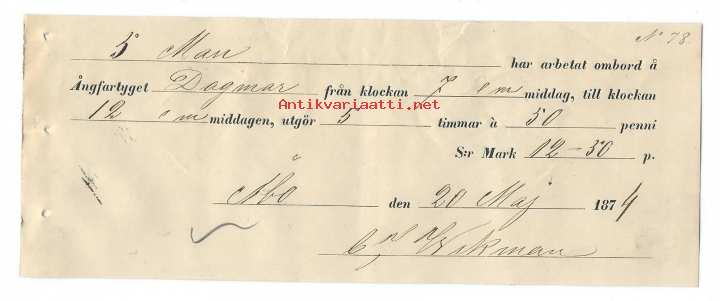 N 78.
5 Man har arbetat ombord å
Ångfartyget Dagmar från klockan 7 e m middag, till klockan
Antikvariaatti.net
12 e m middagen, utgör 5 timmar à 50 penni
S:r Mark 12-50 p.
Åbo den 20 Maj 1874
Wikman